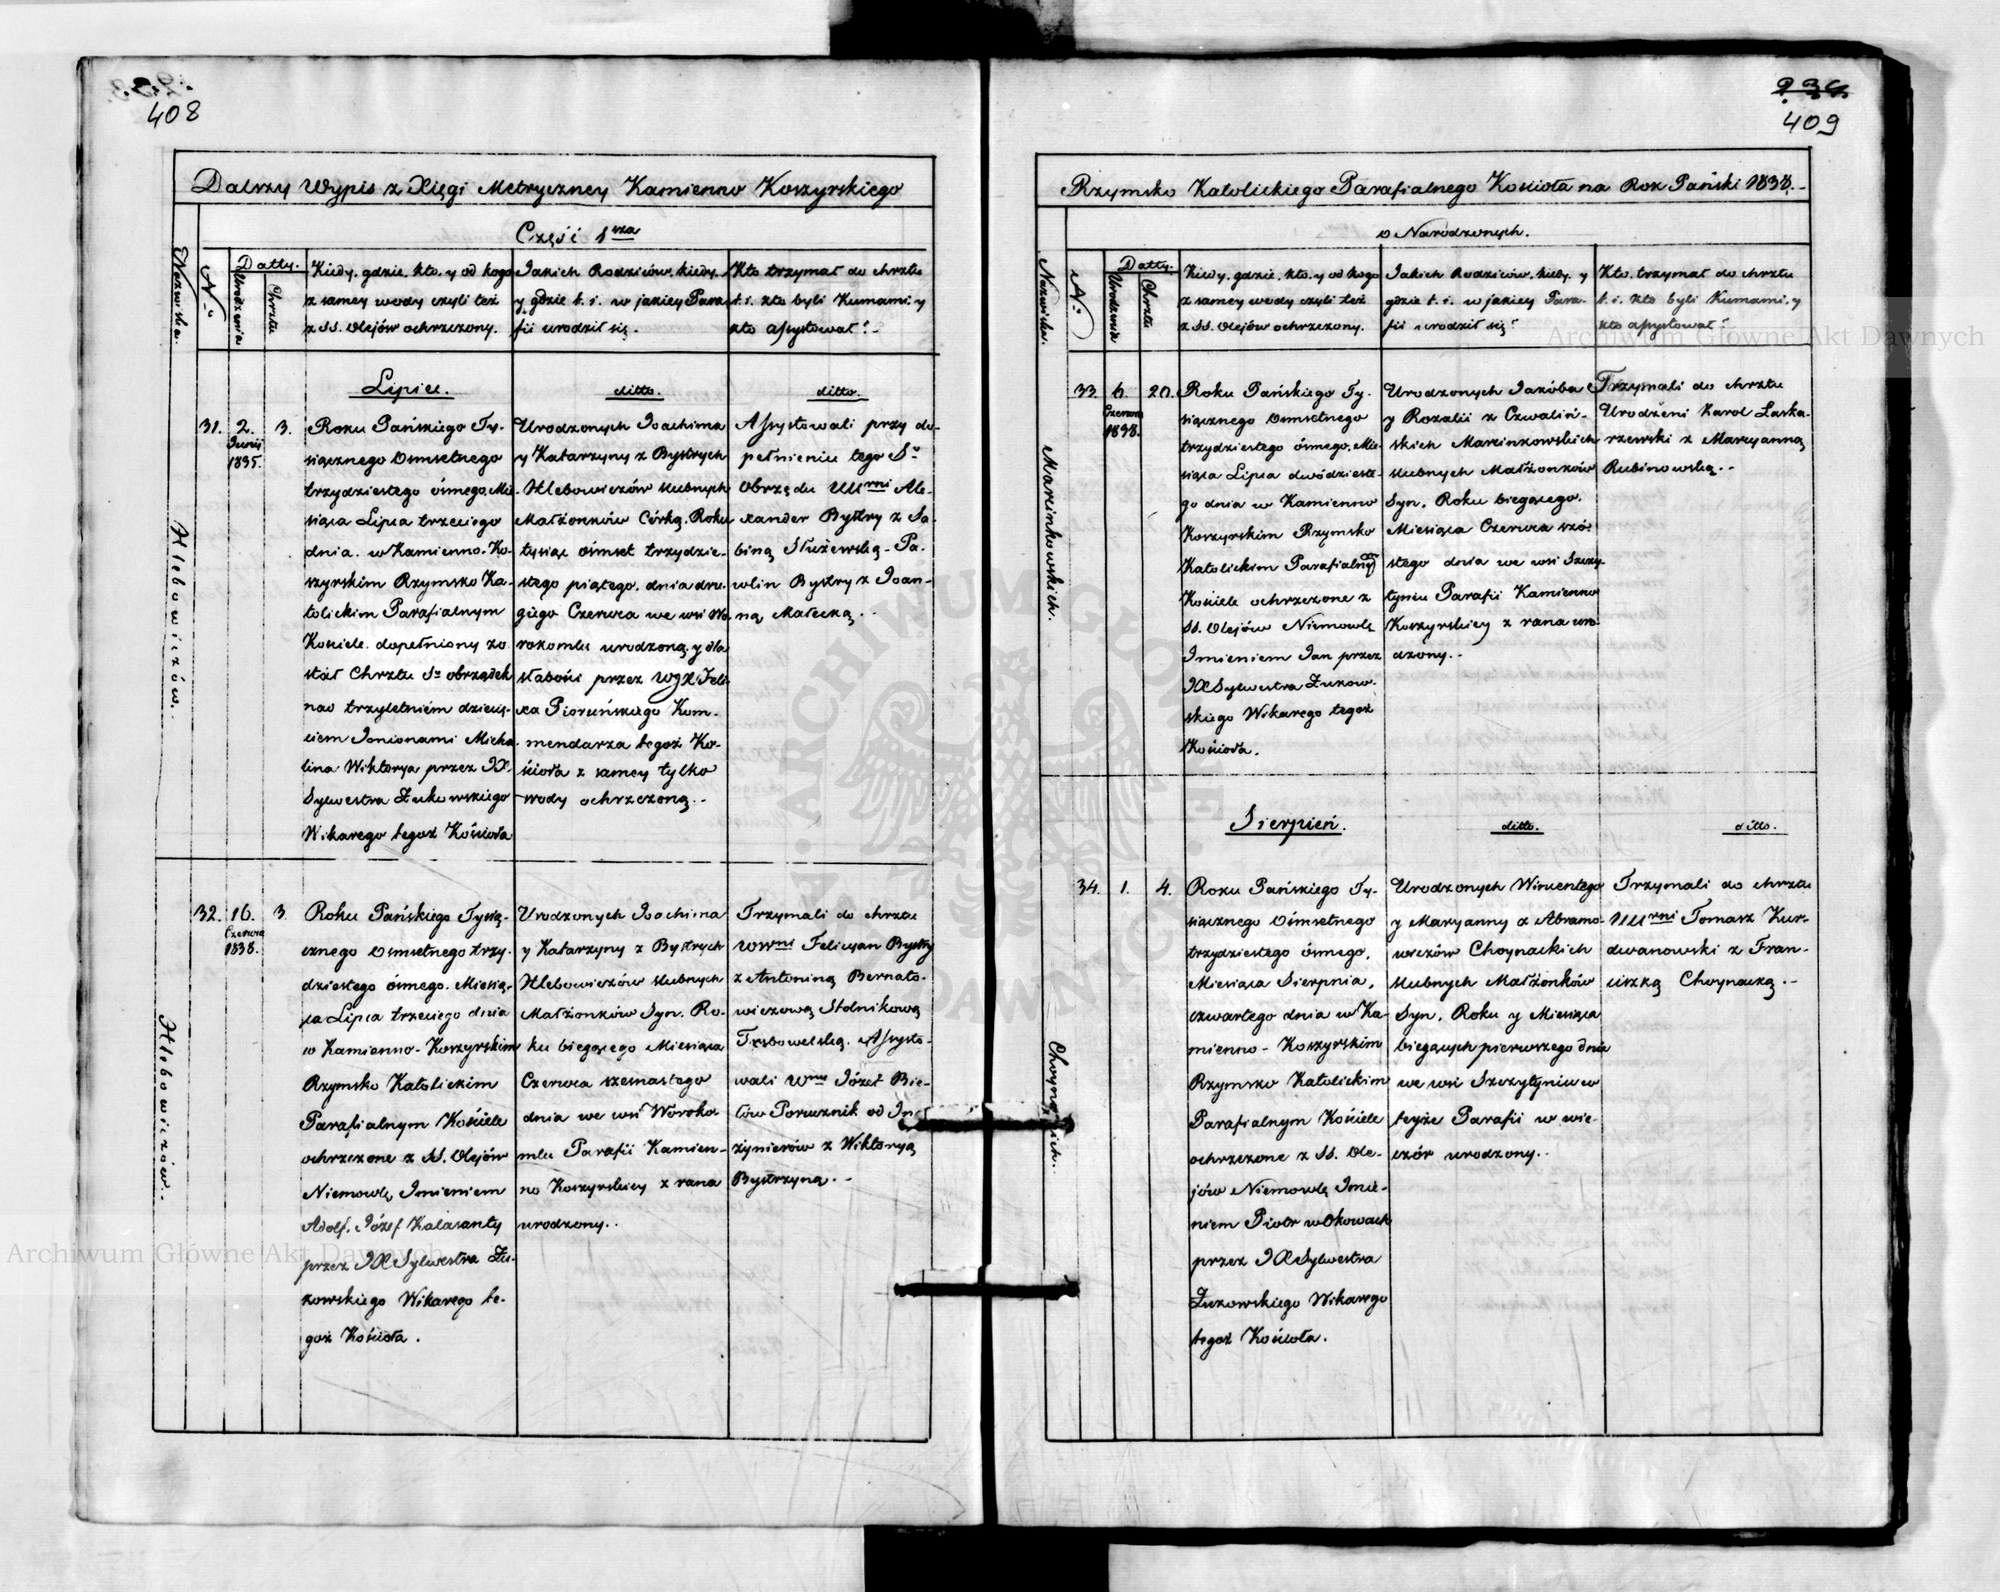 408
409
Dalszy Wypis z Xięgi Metryczney Kamienno Koszyrskiego
Część 1sza
Nazwiska.
N.
Datty.
Urodzenia
Chrztu
Kiedy, gdzie, kto, y od kogo
z samey wody czyli też
z SS. Olejów ochrzczony.
Jakich Rodziców, kiedy,
y gdzie t. i. w jakiey Para
fii urodził się.
Kto trzymał do chrztu
t. i. kto byli Kumami, y
kto assystował?
Hlebowiczów.
Lipiec.
ditto.
ditto.
31.
2.
Junij
1835.
3.
Roku Pańskiego Ty-
siącznego Ośmsetnego
trzydziestego ósmego, Mie-
siąca Lipca trzeciego
dnia. w Kamienno-Ko-
szyrskim Rzymsko Ka-
tolickim Parafialnym
Kościele dopełniony zo
stał Chrztu St. obrządek
nad trzyletniem dziecię-
ciem Imionami Micha-
lina Wiktorya przez JX.
Sylwestra Żukowskiego
Wikarego tegoż Kościoła
Urodzonych Joachima
y Katarzyny z Bystrych
Hlebowiczów slubnych
Małżonków Córką, Roku
tysiąc ośmset trzydzie-
stego piątego, dnia dru-
giego Czerwca we wsi Wo-
rokomlu urodzoną, y dla
słabości przez WJX Feli
xa Pioruńskiego Kom-
mendarza tegoż Ko-
ścioła z samey tylko
wody ochrzczoną.
Assystowali przy do-
pełnieniu tego St.
Obrzędu Urni Ale-
xander Bystry z Sa-
biną Służewską - Pa-
wlin Bystry z Joan-
ną Małecką.
Hlebowiczów.
32.
16.
Czerwca
1838.
3.
Roku Pańskiego Tysią-
cznego Ośmsetnego trzy-
dziestego ósmego, Miesią-
ca Lipca trzeciego dnia
w Kamienno-Koszyrskim
Rzymsko Katolickim
Parafialnym Kościele
ochrzczone z SS. Olejów
Niemowlę Imieniem
Adolf, Józef Kalasanty
przez JX Sylwestra Żu-
kowskiego Wikarego te-
goż Kościoła.
Urodzonych Joachima
y Katarzyny z Bystrych
Hlebowiczów slubnych
Małżonków Syn, Ro-
ku bieżącego Miesiąca
Czerwca szesnastego
dnia we wsi Woroko-
mlu Parafii Kamien-
no Koszyrskiey z rana
urodzony.
Trzymali do chrztu
WWni Felicyan Bystry
z Antoniną Bernato-
wiczową Stolnikową
Trębowelską. Assysto-
wali Wny Józef Bie-
Porucznik od In-
żynierów z Wiktoryą
Bystrzyną.
Rzymsko Katolickiego Parafialnego Kościoła na Rok Pański 1838.
o Narodzonych.
Nazwiska.
N.
Datty.
Urodzenia
Chrztu
Kiedy, gdzie, kto, y od kogo
z samey wody czyli też
z SS. Olejów ochrzczony.
Jakich Rodziców, kiedy, y
gdzie t. i. w jakiey Para-
fii urodził się?
Kto trzymał do chrztu
t. i. kto byli Kumami, y
kto assystował?
Marcinkowskich.
33.
6.
Czerwca
1838.
20.
Roku Pańskiego Ty-
siącznego Ośmsetnego
trzydziestego ósmego, Mie-
siąca Lipca dwódzieste-
go dnia w Kamienno
Koszyrskim Rzymsko
Katolickim Parafialnym
Kościele ochrzczone z
SS. Olejów Niemowlę
Imieniem Jan przez
JX Sylwestra Żukow-
skiego Wikarego tegoż
Kościoła.
Urodzonych Jakóba
y Rozalii z Czwaliń-
skich Marcinkowskich
slubnych Małżonków
Syn, Roku bieżącego,
Miesiąca Czerwca szó-
stego dnia we wsi Szczy-
tyniu Parafii Kamienno
Koszyrskiey z rana uro-
dzony.
Trzymali do chrztu
Urodzeni Karol Laska-
rzewski z Maryanną
Rubinowską.
Choynackich.
Sierpień.
ditto.
ditto.
34.
1.
4.
Roku Pańskiego Ty-
siącznego Ośmsetnego
trzydziestego ósmego,
Miesiąca Sierpnia,
czwartego dnia w Ka-
mienno-Koszyrskim
Rzymsko Katolickim
Parafialnym Kościele
ochrzczone z SS. Ole-
jów Niemowlę Imie-
niem Piotr w Okowach
przez JX Sylwestra
Żukowskiego Wikarego
tegoż Kościoła.
Urodzonych Wincentego
y Maryanny z Abramo-
wiczów Choynackich
slubnych Małżonków
Syn, Roku y Miesiąca
bieżących pierwszego dnia
we wsi Szczytyniu w
teyże Parafii w wie-
czór urodzony.
Trzymali do chrztu
Urni Tomasz Kur-
dwanowski z Fran-
ciszką Choynacką.
Archiwum Główne Akt Dawnych
Archiwum Główne Akt Dawnych
ARCHIWUM GŁÓWNE AKT DAWNYCH